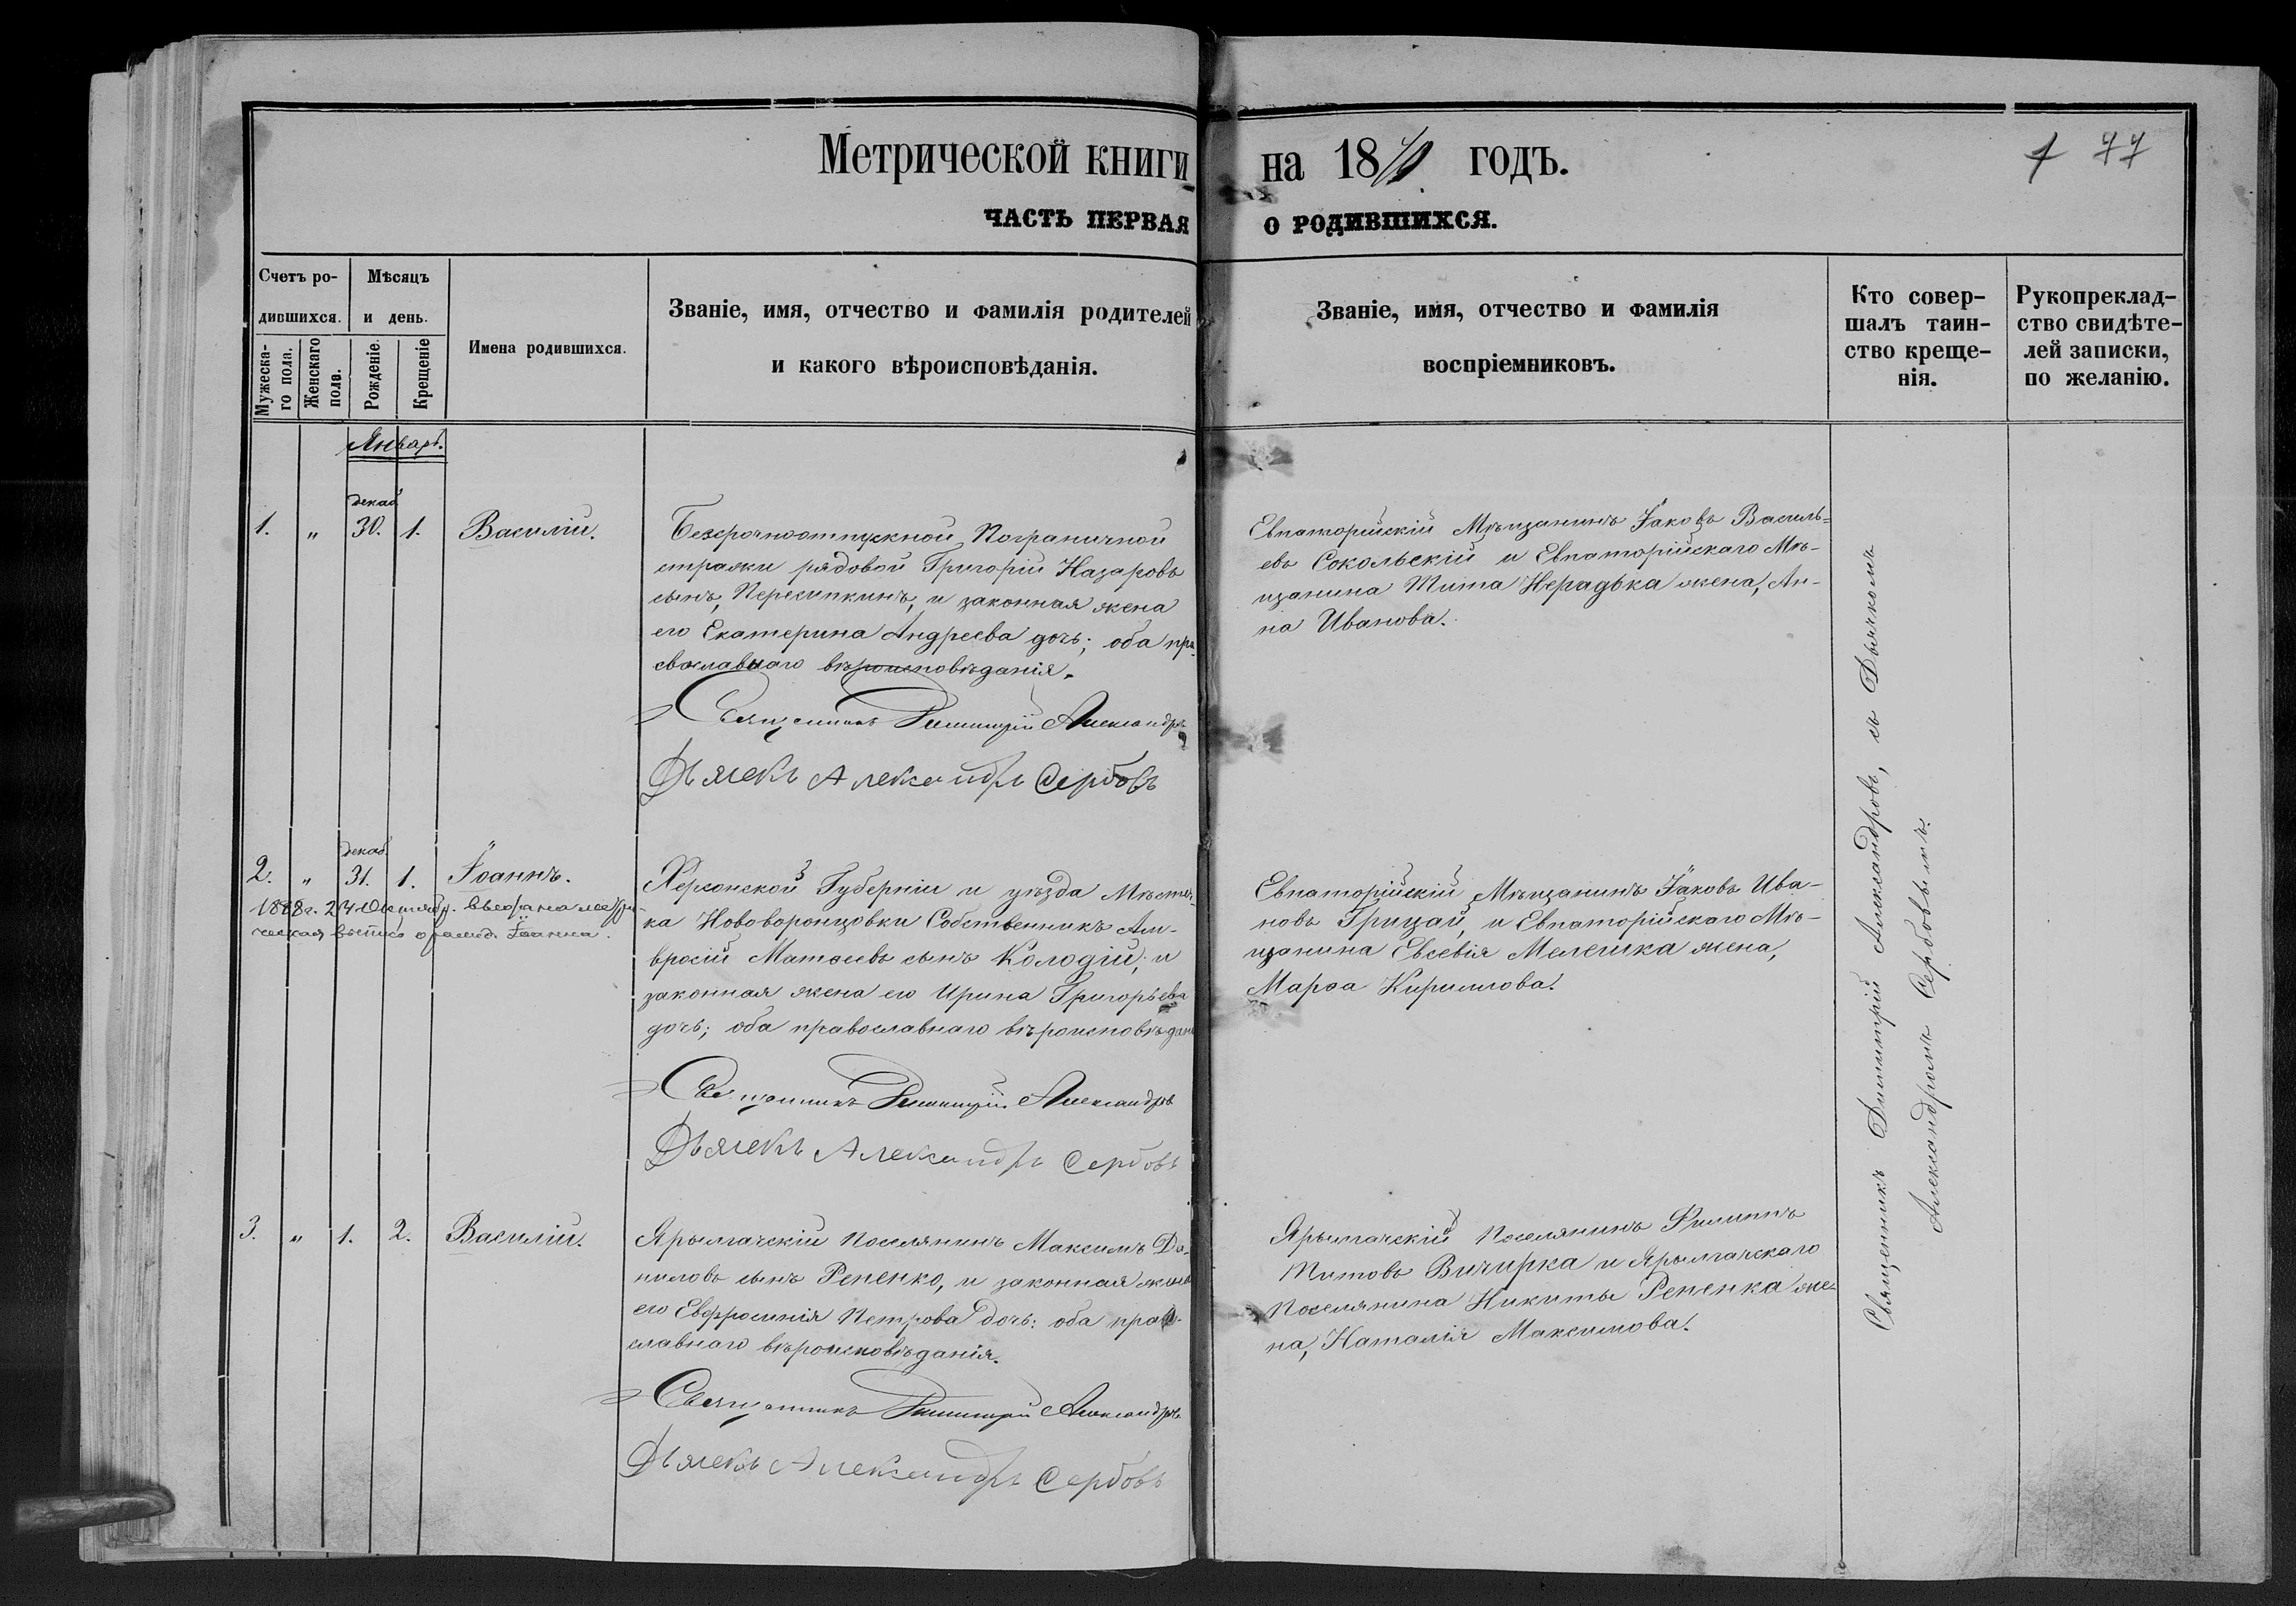 Метрической книги на 18 годъ.
77
ЧАСТЬ ПЕРВАЯ О РОДИВШИХСЯ.
Счетъ ро-
дившихся.
Мужеска-
го пола.
Женскаго
пола.
Мѣсяцъ
и день.
Рожденіе.
Крещеніе
Имена родившихся.
Званіе, имя, отчество и фамилія родителей
и какого вѣроисповѣданія.
Званіе, имя, отчество и фамилія
воспріемниковъ.
Кто совер-
шалъ таин-
ство креще-
нія.
Рукопреклад-
ство свидѣте-
лей записки,
по желанію.
Январь.
декаб.
1. " 30. 1. Василій.
Безсрочноотпускной Пограничной
стражи рядовой Григорій Назаровъ
сынъ, Пересипкинъ, и законная жена
его Екатерина Андреева дочь; оба пра-
вославнаго вѣроисповѣданія.
Священникъ Димитрій Александровъ
Дьячекъ Александръ Сербовъ
Евпаторійскій Мѣщанинъ Іаковъ Василь-
евъ Сокольскій и Евпаторійскаго Мѣ-
щанина Тита Нерадька жена, Ан-
на Иванова.
декаб.
2. " 31. 1. Іоаннъ.
1888 г. 24 Октября выдана метри-
ческая выпись о рожд. Іоанна.
Херсонской Губерніи и уѣзда Мѣстеч-
ка Нововоронцовки Собственникъ Ам-
вросій Матѳеевъ сынъ Колодій; и
законная жена его Ирина Григорьева
дочь; оба православнаго вѣроисповѣдані
Священникъ Димитрій Александровъ
Дьячекъ Александръ Сербовъ
Евпаторійскій Мѣщанинъ Іаковъ Ива-
новъ Грицай, и Евпаторійскаго Мѣ-
щанина Евсевія Мелешка жена,
Марѳа Кириллова.
3. " 1. 2. Василій.
Ярылгачскій Поселянинъ Максимъ Да-
ниловъ сынъ Репенко, и законная жена
его Евфросинія Петрова дочь: оба право-
славнаго вѣроисповѣданія.
Священникъ Димитрій Александровъ
Дьячекъ Александръ Сербовъ
Ярылгачскій Поселянинъ Филиппъ
Титовъ Вичирка и Ярылгачскаго
Поселянина Никиты Репенка же-
на, Наталія Максимова.
Священникъ Димитрій Александровъ, съ Дьячкомъ
Александромъ Сербовымъ.